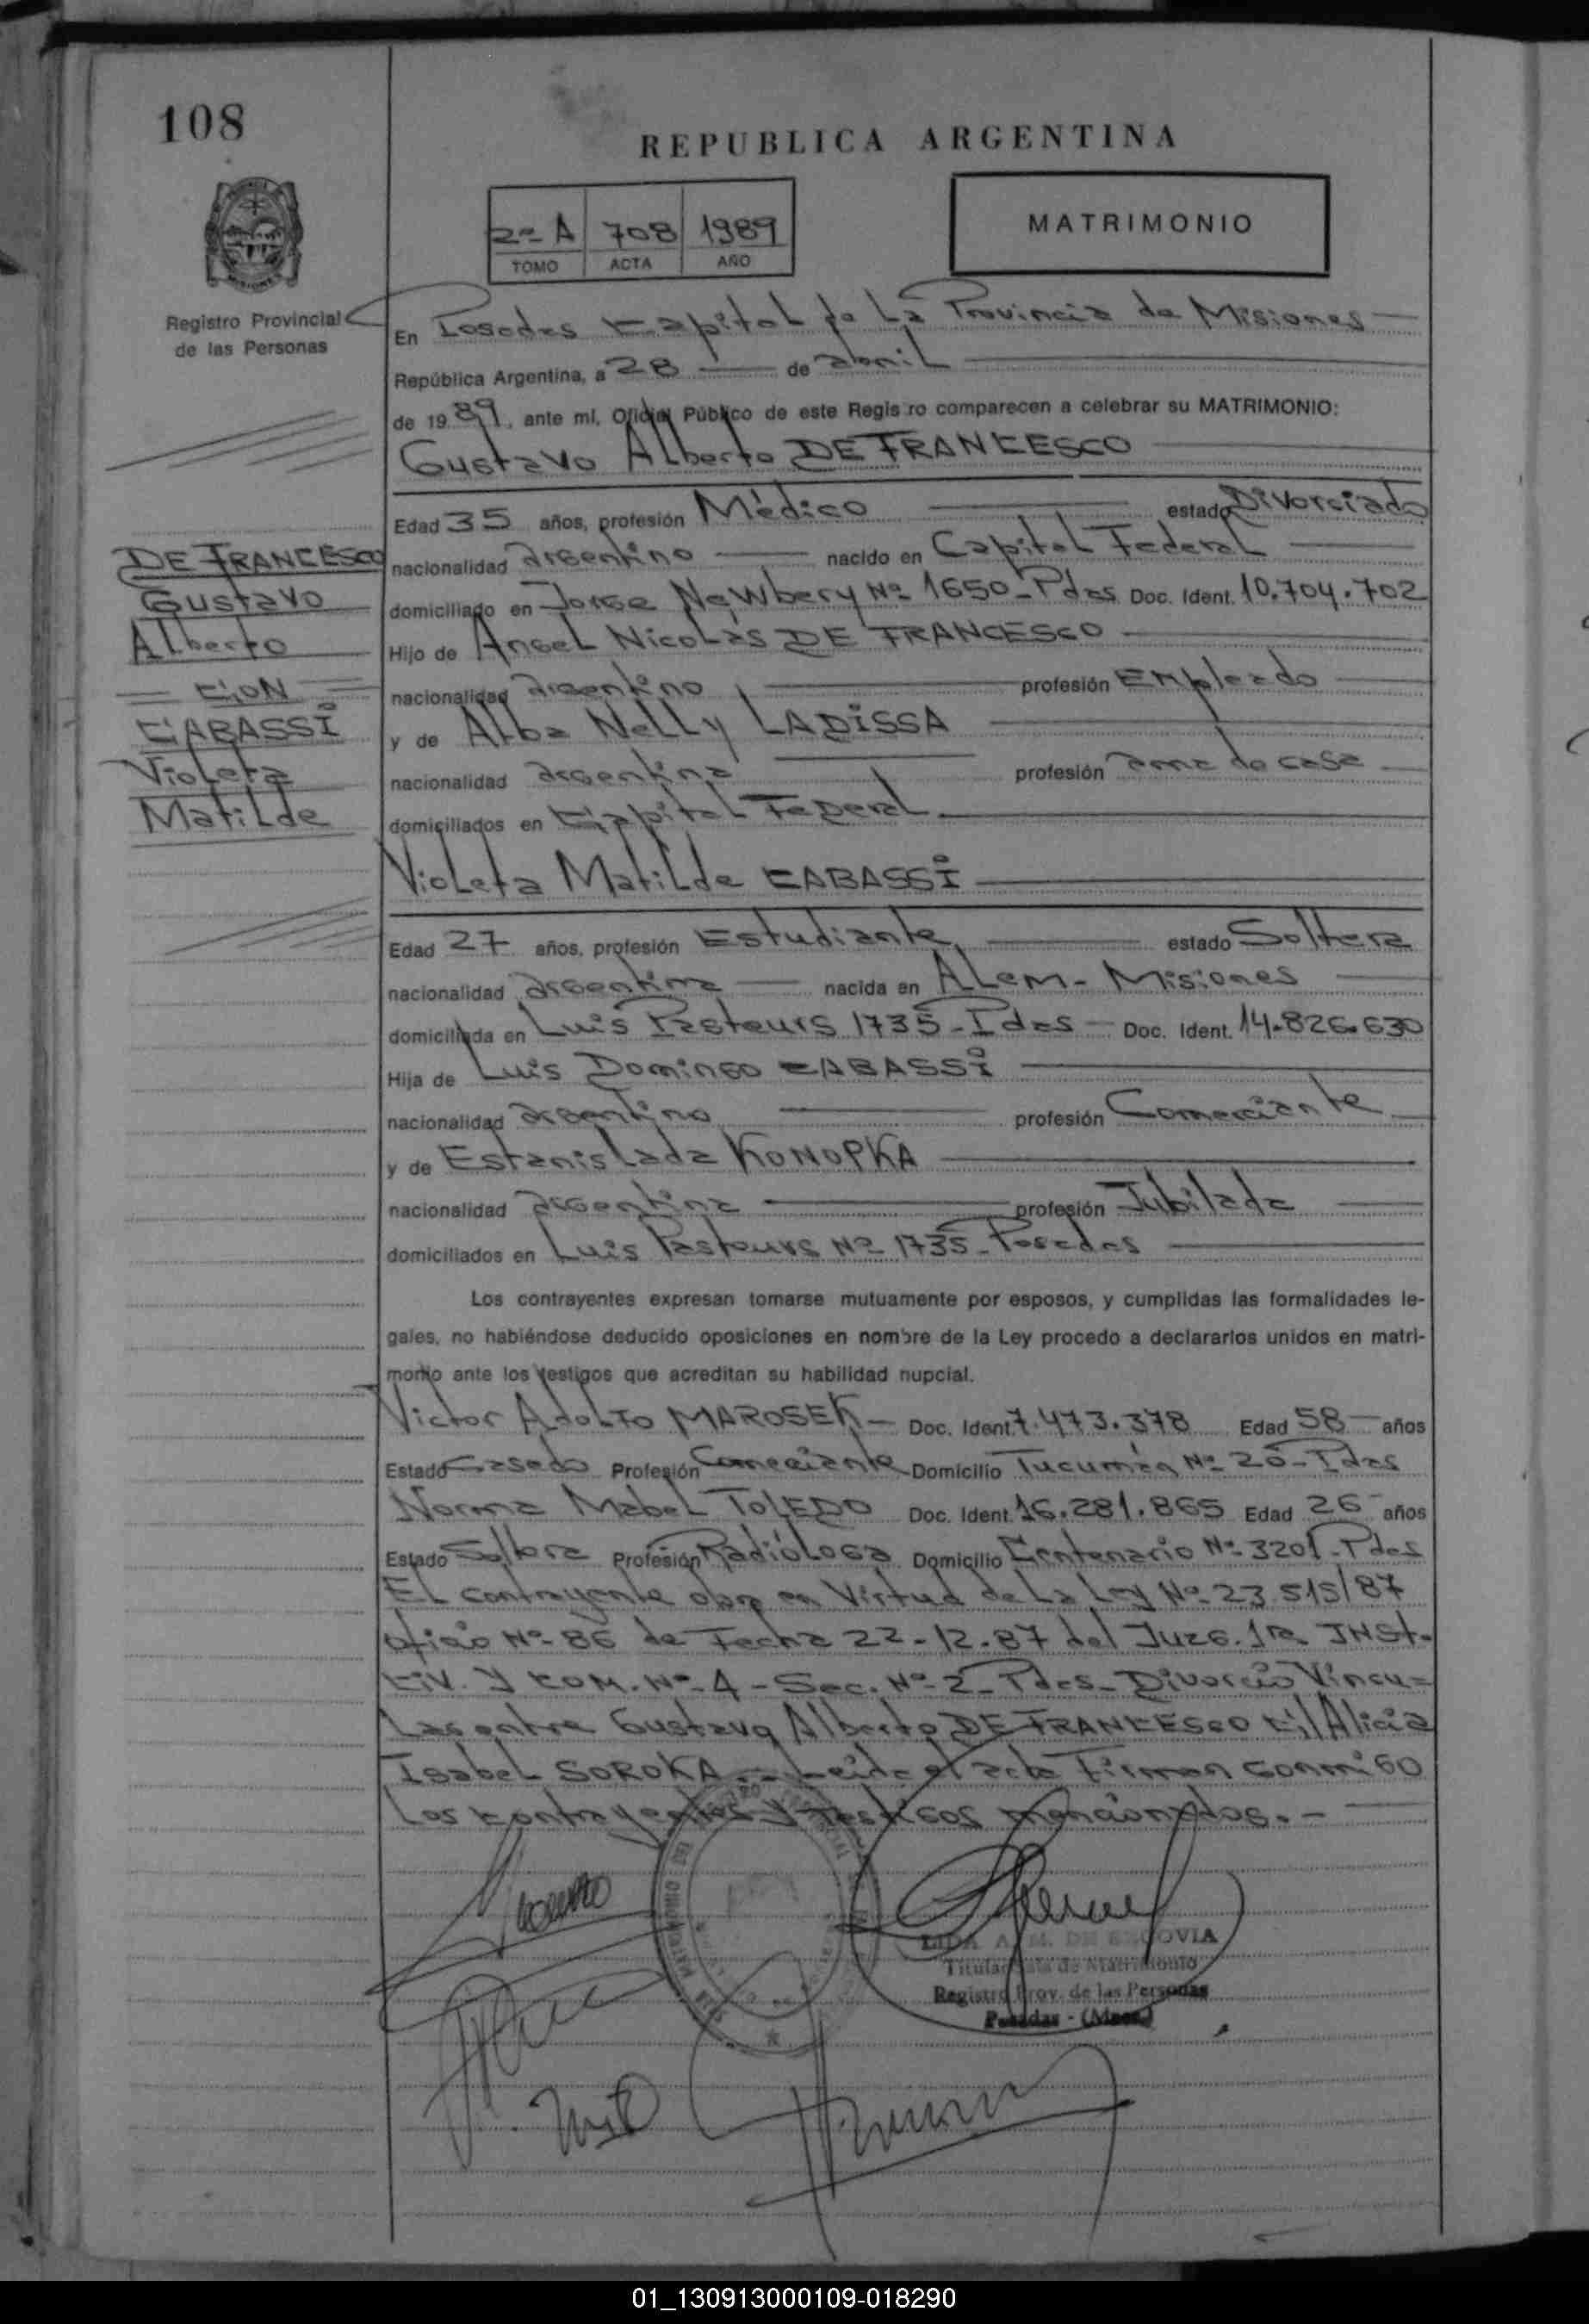 108
REPUBLICA ARGENTINA
2º A 708 1989
TOMO ACTA AÑO
MATRIMONIO
Registro Provincial
de las Personas
En Posadas Capital de La Provincia de Misiones
República Argentina, a 28 de abril
de 1989, ante mi, Oficial Público de este Registro comparecen a celebrar su MATRIMONIO:
Gustavo Alberto DE FRANCESCO
Edad 35 años, profesión Médico estado Divorciado
nacionalidad argentino nacido en Capital Federal
domiciliado en Jorge Newbery Nº 1650 - Pdas Doc. Ident. 10.704.702
Hijo de Angel Nicolás DE FRANCESCO
nacionalidad argentino profesión Empleado
y de Alba Nelly LADISSA
nacionalidad argentina profesión ama de casa
domiciliados en Capital Federal
DE FRANCESCO
Gustavo
Alberto
CON
CABASSI
Violeta
Matilde
Violeta Matilde CABASSI
Edad 27 años, profesión Estudiante, estado Soltera
nacionalidad argentina nacida en ALem - Misiones
domiciliada en Luis Pasteurs 1735 - Pdas - Doc. Ident. 14.826.630
Hija de Luis Domingo CABASSI
nacionalidad argentino profesión Comerciante
y de Estanislada KONOPKA
nacionalidad argentina profesión Jubilada
domiciliados en Luis Pasteurs Nº 1735 - Posadas
Los contrayentes expresan tomarse mutuamente por esposos, y cumplidas las formalidades le-
gales, no habiéndose deducido oposiciones en nombre de la Ley procedo a declararlos unidos en matri-
monio ante los testigos que acreditan su habilidad nupcial.
Victor Adolfo MAROSEK - Doc. Ident. 7.473.378 Edad 58 años
Estado Casado Profesión Comerciante Domicilio Tucumán Nº 20 - Pdas
Norma Mabel TOLEDO Doc. Ident. 16.281.865 Edad 26 años
Estado Soltera Profesión Radióloga Domicilio Centenario Nº 3201 - Pdas
El contrayente obra en Virtud de La Ley Nº 23.515/87
oficio Nº 86 de Fecha 22-12-87 del Juzg. 1ra INST.
CIV. Y COM. Nº 4 - Sec. Nº 2 - Pdas - Divorcio Vincu=
Lar entre Gustavo Alberto DE FRANCESCO C/ Alicia
Isabel SOROKA.- Leida el acta Firman conmigo
Los contrayentes y testigos mencionados.-
LIDA A. M. DE SEGOVIA
Titular Sala de Matrimonio
Registro Prov. de las Personas
Posadas - (Mnes.)
01_130913000109-018290